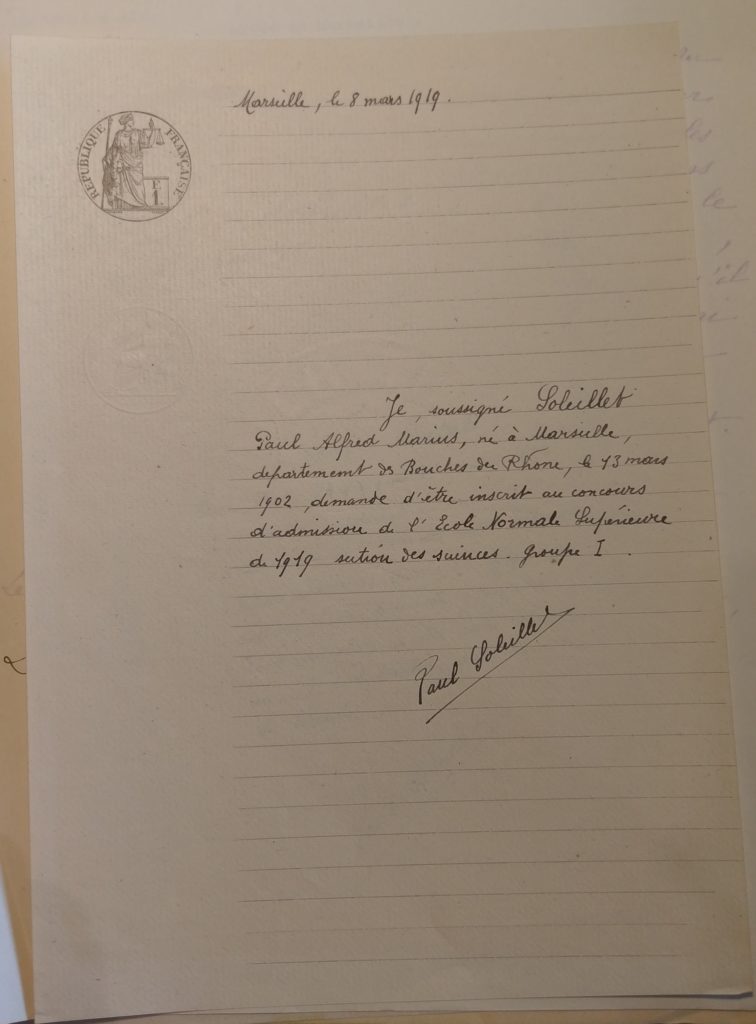 Marseille, le 8 mars 1919.
RÉPUBLIQUE FRANÇAISE
E
1.
Je, soussigné Soleillet
Paul Alfred Marius, né à Marseille,
département des Bouches du Rhône, le 13 mars
1902, demande d'être inscrit au concours
d'admission de l'Ecole Normale Supérieure
de 1919 section des sciences. Groupe I.
Paul Soleillet